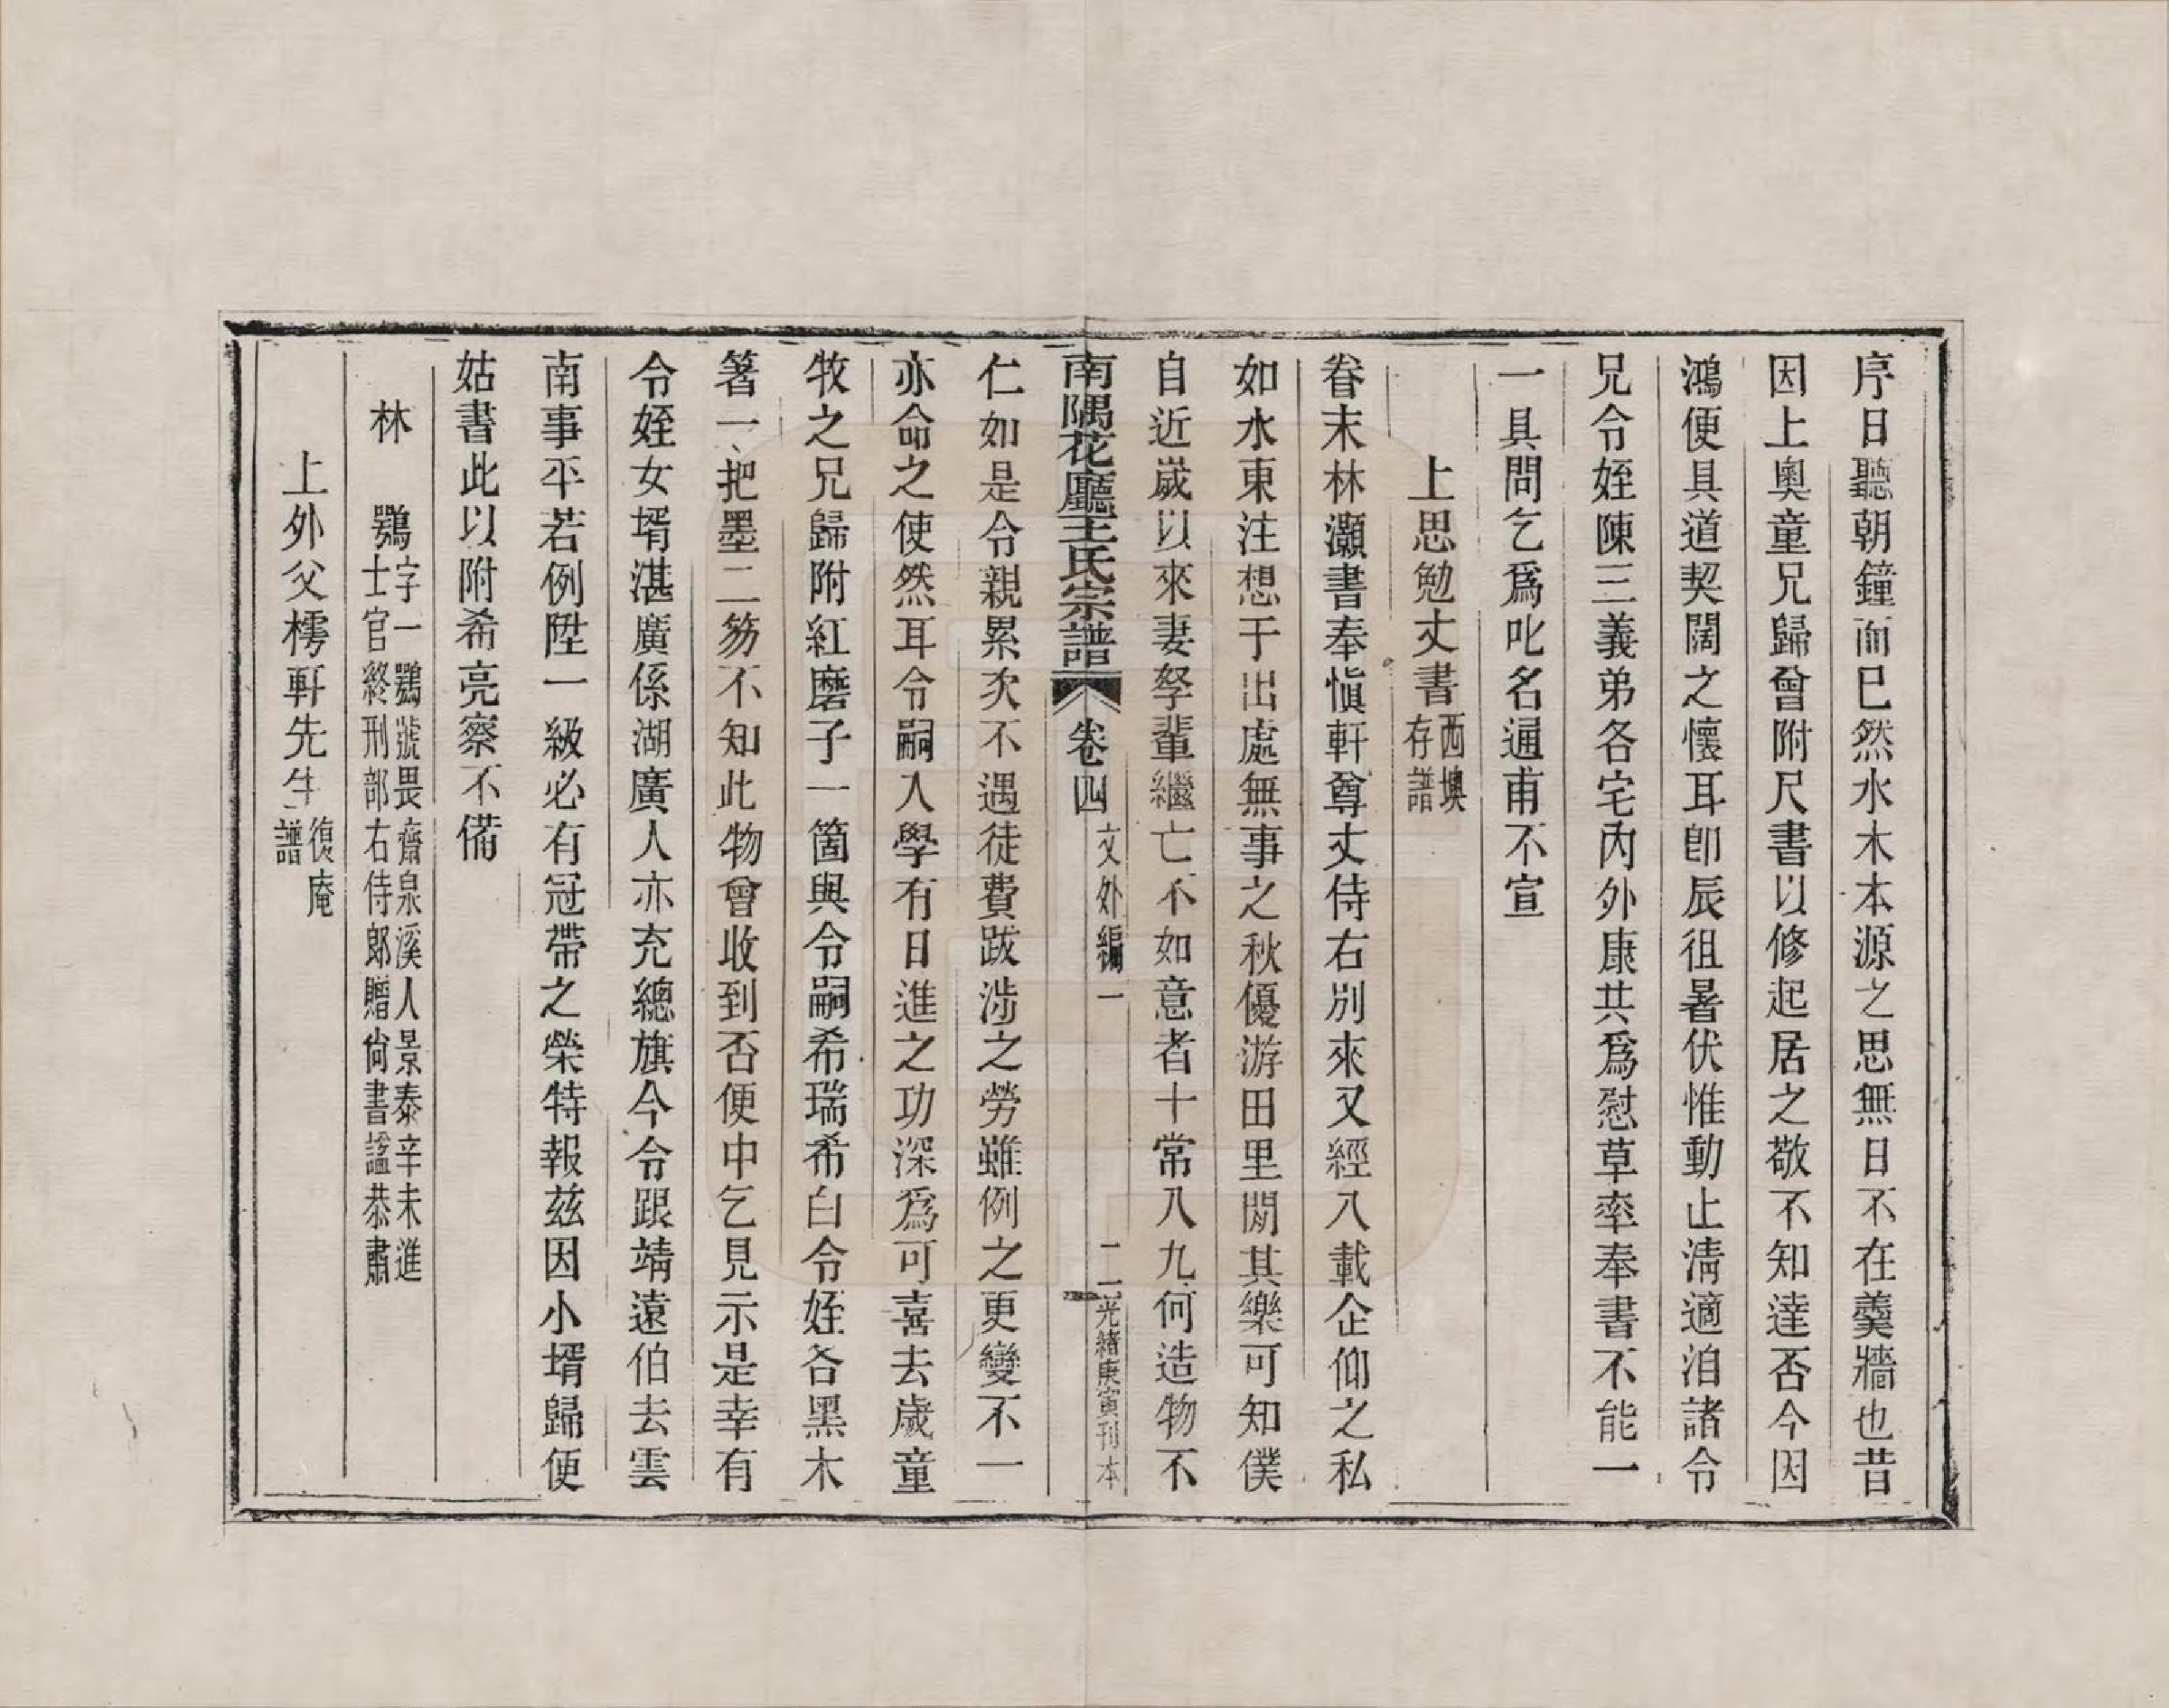 序日聽朝鐘而已然水木本源之思無日不在羹牆也昔
因上奧童兄歸曾附尺書以修起居之敬不知達否今因
鴻便具道契闊之懷耳卽辰徂暑伏惟動止清適洎諸令
兄令姪陳三義弟各宅內外康共爲慰草率奉書不能一
一具問乞爲叱名通甫不宣
上思勉丈書西墺存譜
眷末林灝書奉愼軒尊丈侍右別來又經八載企仰之私
如水東注想于出處無事之秋優游田里閒其樂可知僕
自近歲以來妻孥輩繼亡不如意者十常八九何造物不
南隅花廳王氏宗譜 卷四 文外編一 二 光緒庚寅刊本
仁如是令親累次不遇徒費跋涉之勞雖例之更變不一
亦命之使然耳令嗣入學有日進之功深爲可喜去歲童
牧之兄歸附紅磨子一箇與令嗣希瑞希白令姪各黑木
箸一把墨二笏不知此物曾收到否便中乞見示是幸有
令姪女壻湛廣係湖廣人亦充總旗今令跟靖遠伯去雲
南事平若例陞一級必有冠帶之榮特報茲因小壻歸便
姑書此以附希亮察不備
林 鶚字一鶚號畏齋泉溪人景泰辛未進士官終刑部右侍郎贈尙書諡恭肅
上外父樗軒先生復庵譜